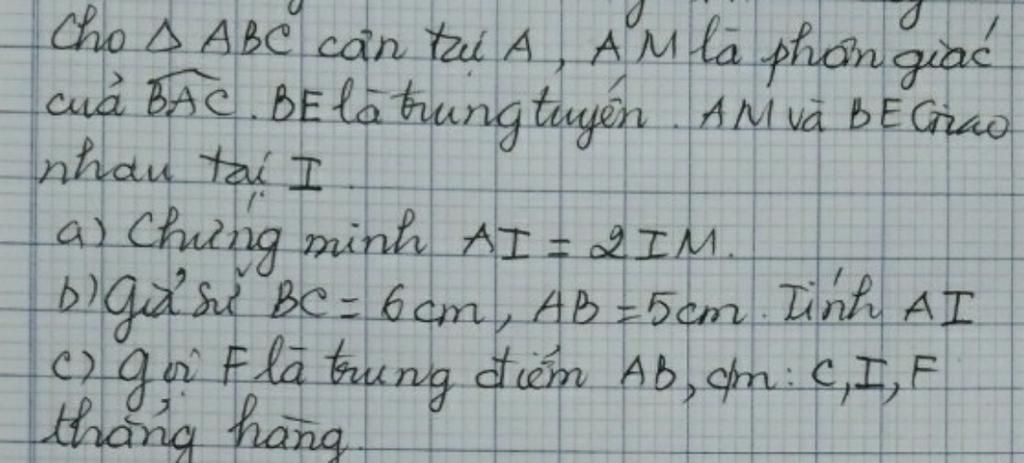 Cho Δ ABC cân tại A, AM là phân giác
của \widehat{BAC}. BE là trung tuyến. AM và BE Giao
nhau tại I
a) Chứng minh AI = 2IM.
b) giả sử BC = 6cm, AB = 5cm. Tính AI
c) gọi F là trung điểm AB, cm: C, I, F
thẳng hàng.